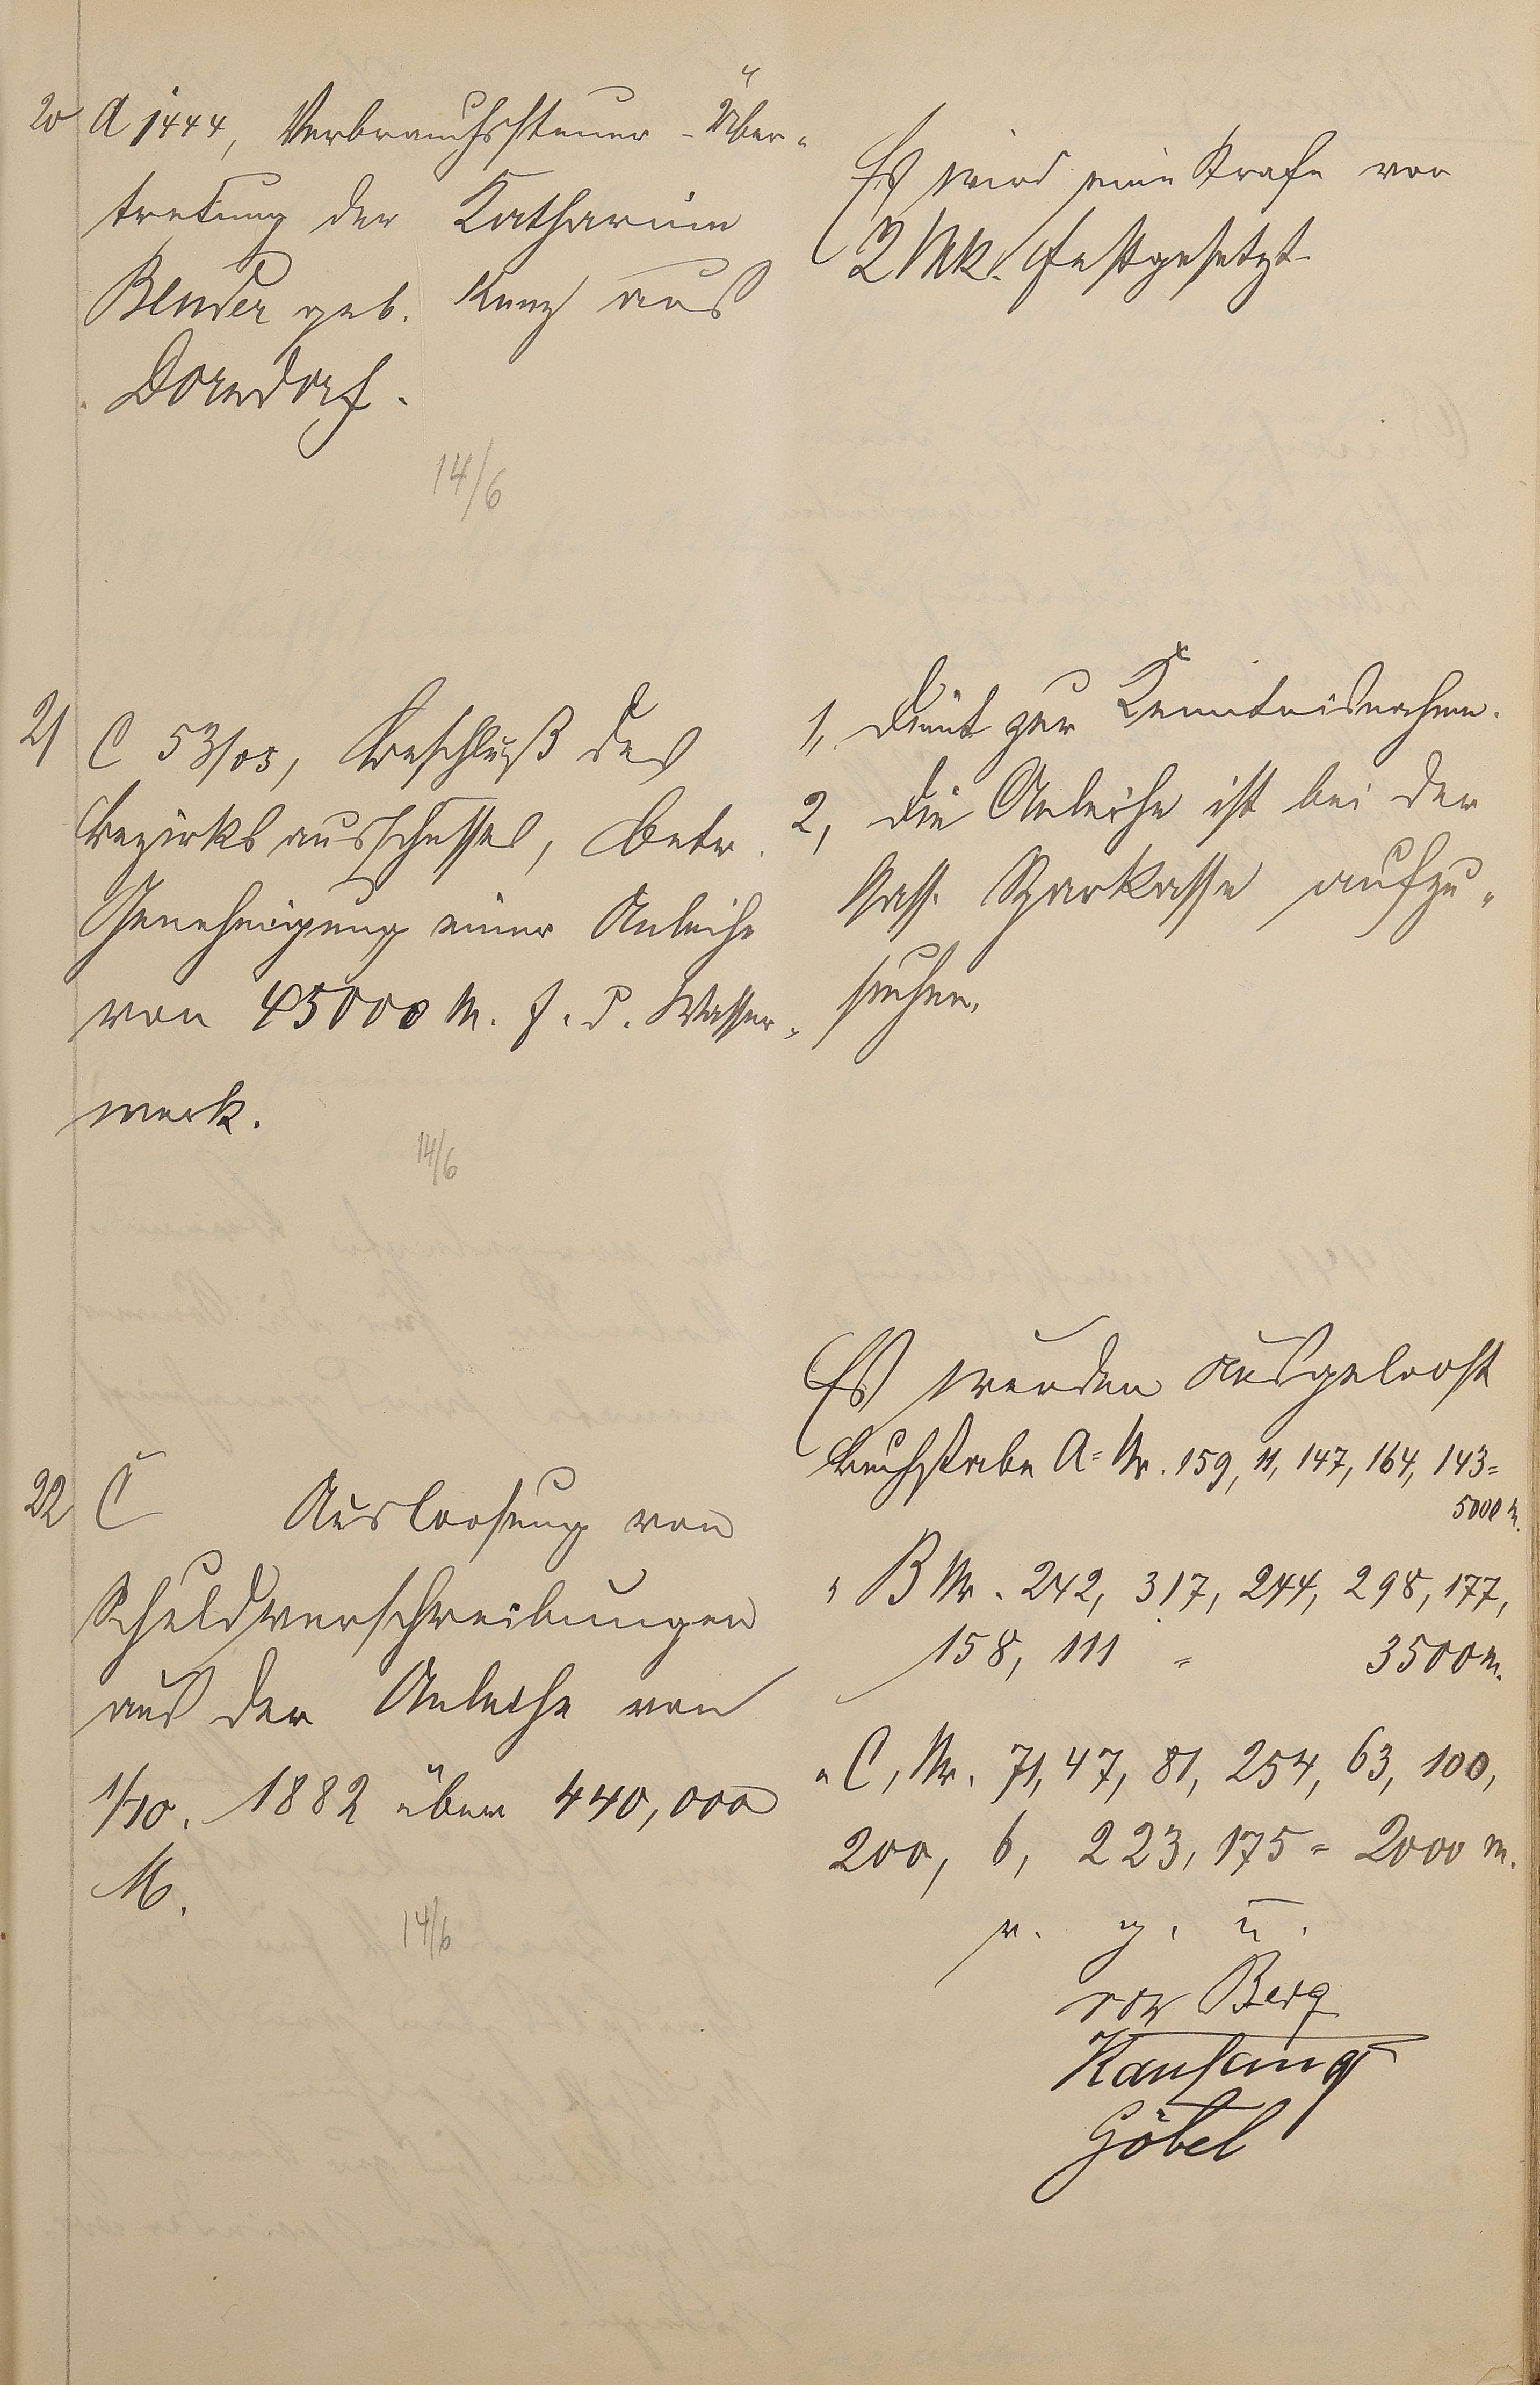 20 A 1444, Verbrauchssteuer-Über-
tretung der Katharine
Bender geb. Kunz aus
Dorndorf.
14/6
Es wird eine Strafe von
2 Mk. festgesetzt.
21 C 53/03, Beschluß des
Bezirksausschusses, betr.
Genehmigung einer Anleihe
von 45000 M. f. d. Wasser-
werk.
14/6
1, dient zur Kenntnisnahme.
2, die Anleihe ist bei der
Nass. Sparkasse aufzu-
suchen.
22 C Ausloosung von
Schuldverschreibungen
aus der Anleihe von
1/10. 1882 über 440,000
M.
14/6
Es wurden ausgeloost
Buchstabe A = Nr. 159, 11, 147, 164, 143 =
5000 M.
" B Nr. 242, 317, 244, 298, 177,
158, 111 = 3500 M.
" C, Nr. 71, 47, 81, 254, 63, 100,
200, 6, 223, 175 = 2000 M.
v. g. u.
von Berg
Kaufung
Göbel